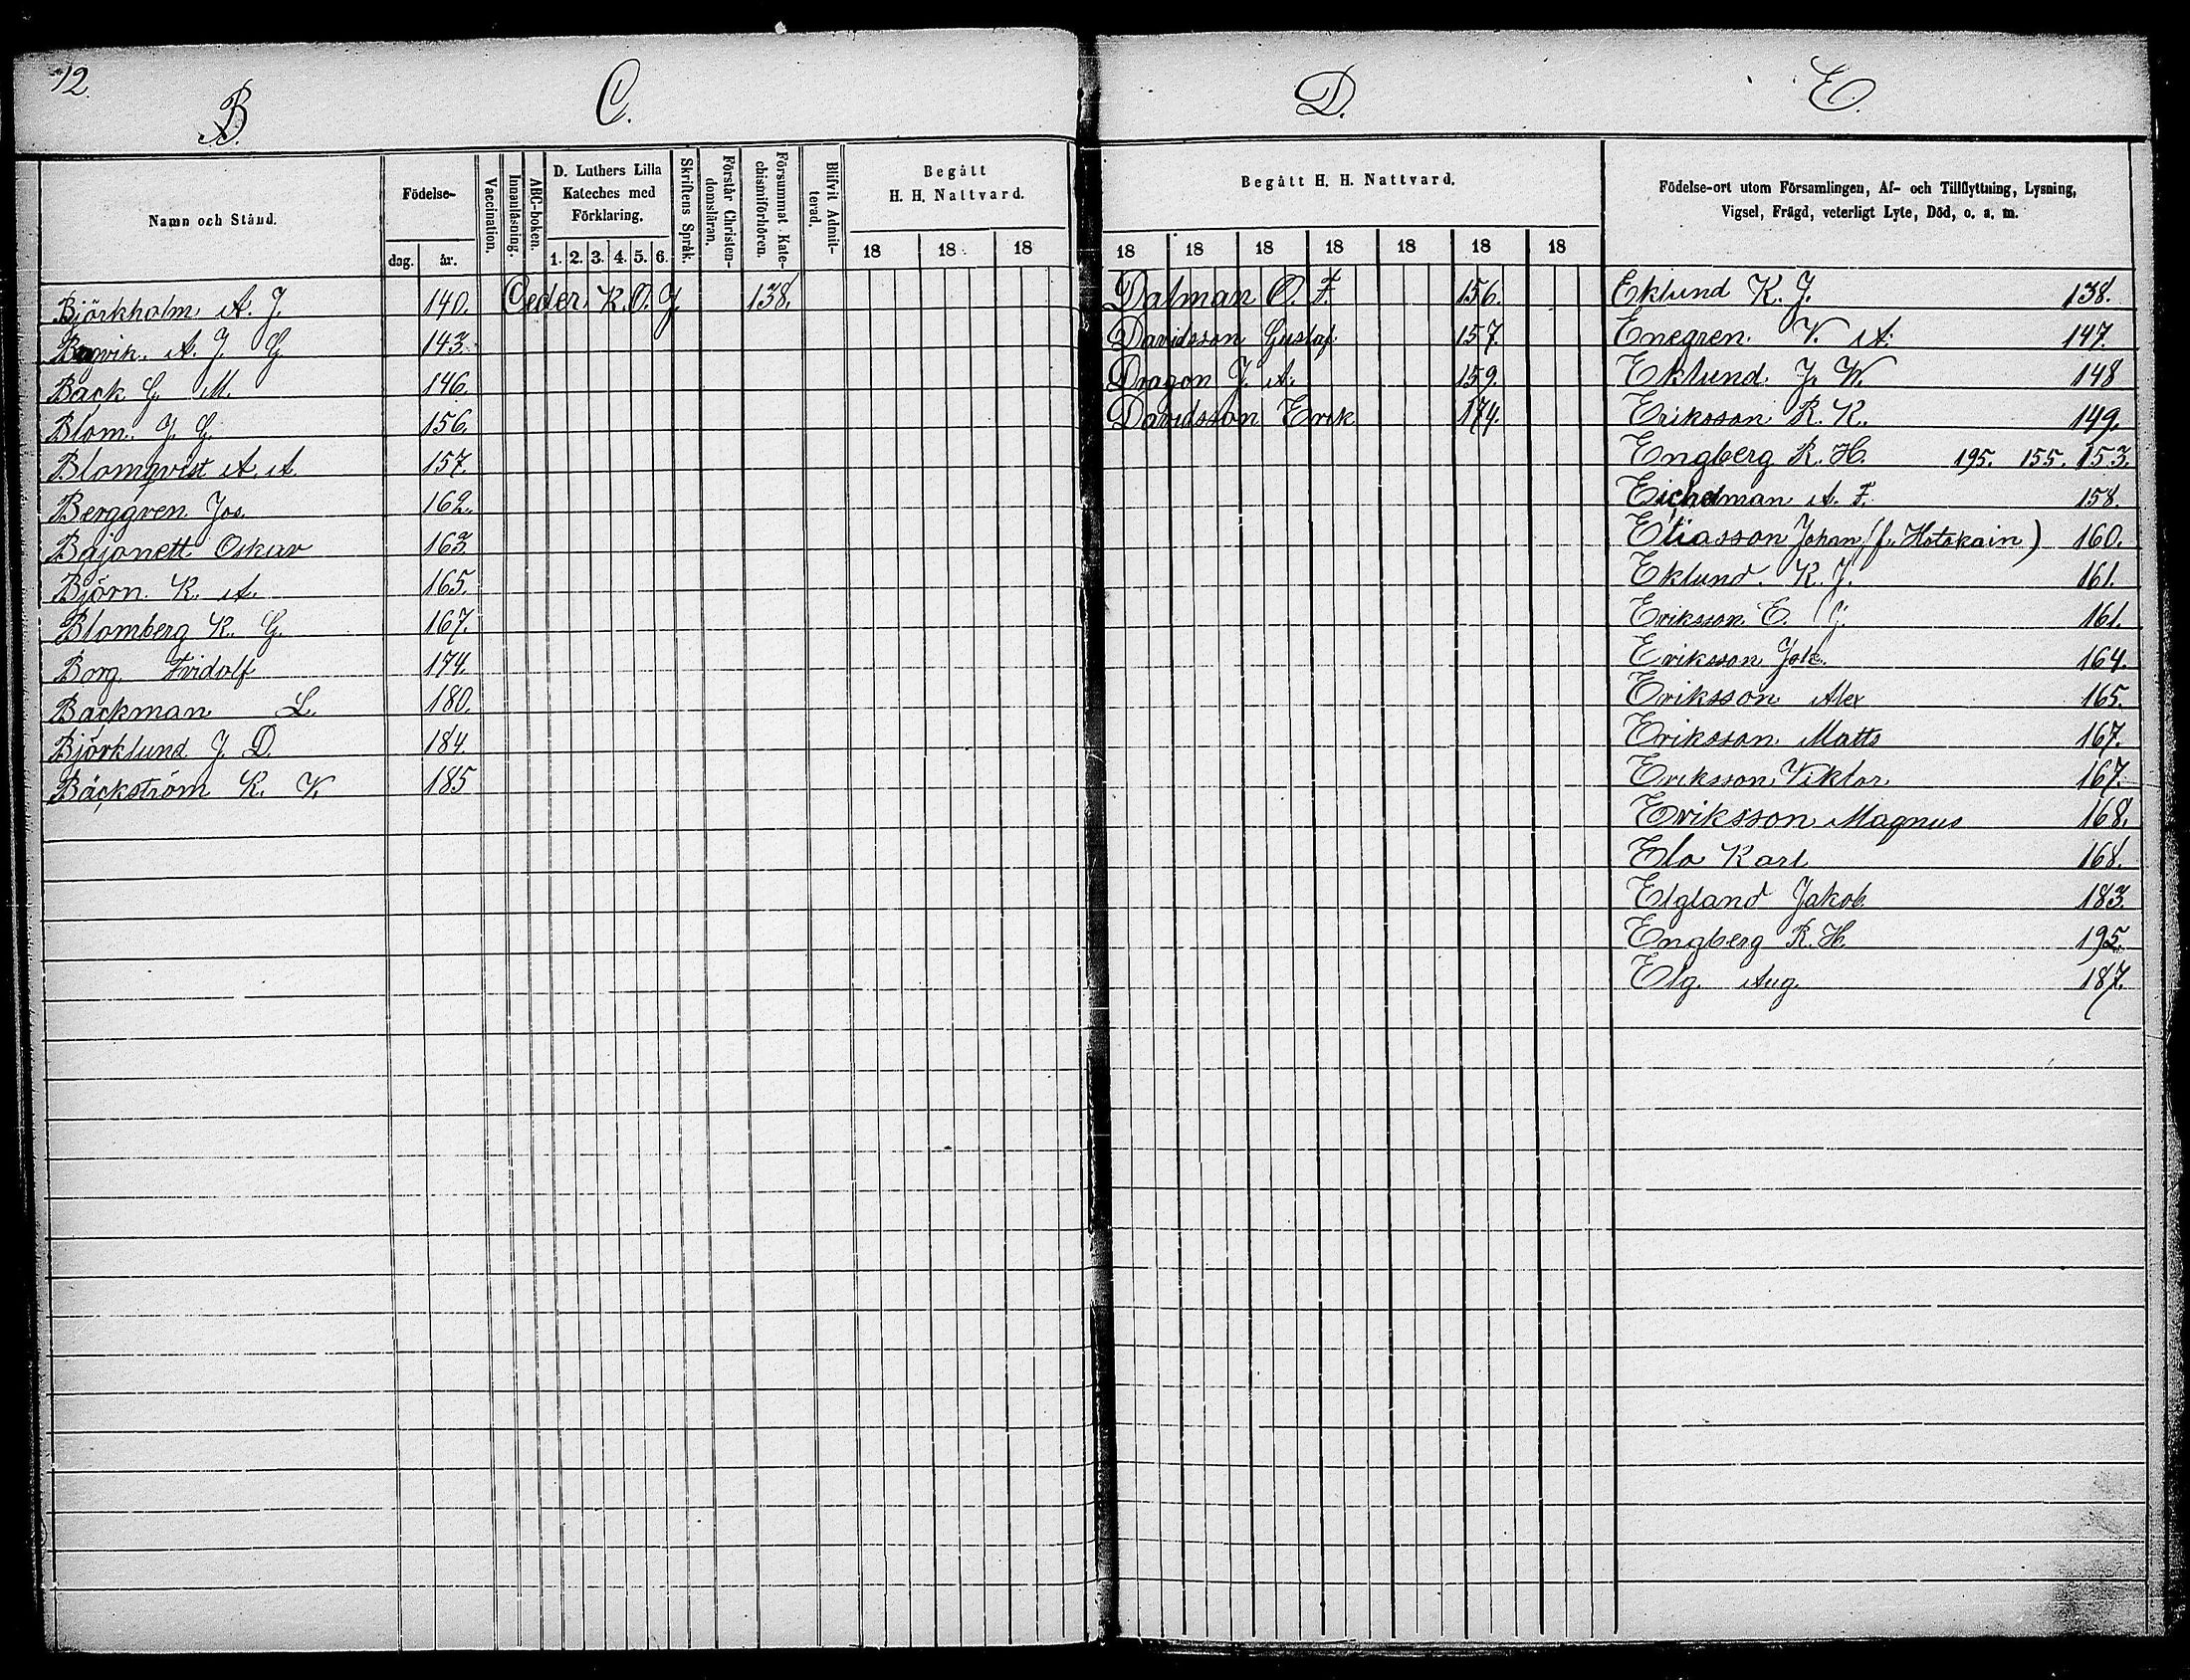 12.
B.
C.
D.
E.
Namn och Stånd.
Födelse-
dag.
år.
Vaccination.
Innanläsning.
ABC-boken.
D. Luthers Lilla
Kateches med
Förklaring.
1. 2. 3. 4. 5. 6.
Skriftens Språk.
Förstår Christen-
domsläran.
Försummat Kate-
chismiförhören.
Blifvit Admit-
terad.
Begått
H. H. Nattvard.
18 18 18
Begått H. H. Nattvard.
18 18 18 18 18 18 18
Födelse-ort utom Församlingen, Af- och Tillflyttning, Lysning,
Vigsel, Frägd, veterligt Lyte, Död, o. a. m.
Björkholm A. J. 140.
A. J. G. 143.
Back G. M. 146.
Blom. J. G. 156.
Blomqvist A. A. 157.
Berggren Jos. 162.
Bajonett Oskar 163.
Björn K. A. 165.
Blomberg K. G. 167.
Borg Fridolf 174.
Backman L. 180.
Björklund J. D. 184.
Bäckström K. V. 185
Ceder. K. O. J. 138.
Dalman O. F. 156.
Davidsson Gustaf 157.
Dragon J. A. 159.
Davidsson Erik 174.
Eklund K. J. 138.
Enegren. V. A. 147.
Eklund. J. W. 148
Eriksson R. K. 149.
Engberg R. H. 195. 155. 153.
A. F. 158.
Eliasson Johan (f. Hotokain) 160.
Eklund. K. J. 161.
Eriksson E. G. 161.
Eriksson Joh. 164.
Eriksson Alex 165.
Eriksson Matts 167.
Eriksson Viktor 167.
Eriksson Magnus 168.
Elo Karl 168.
Elgland Jakob 183.
Engberg R. H. 195.
Elg. Aug. 187.